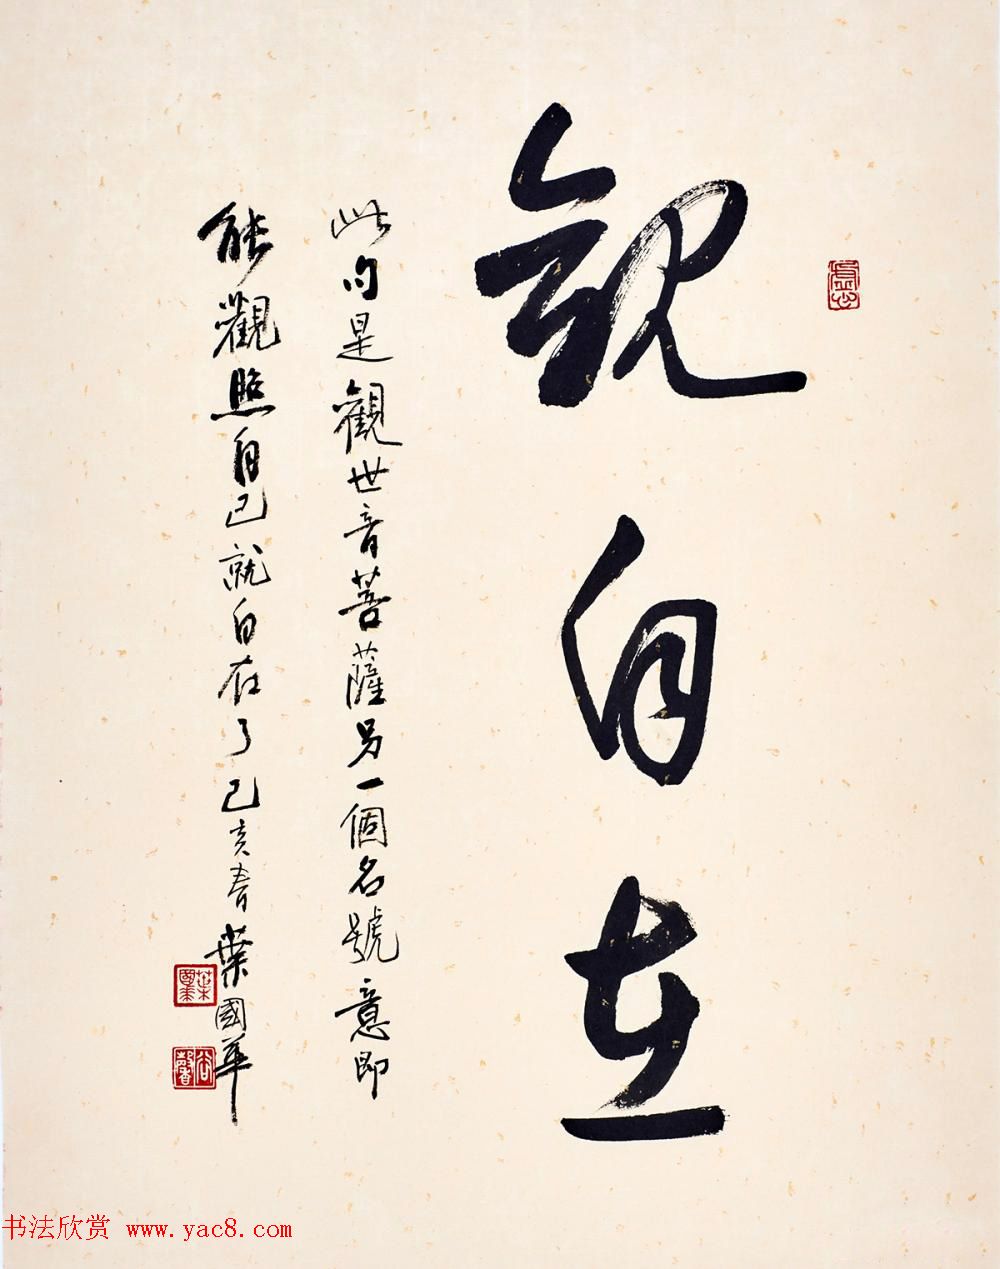 觀自在
此句是觀世音菩薩另一個名號意即
能觀照自己就自在了己亥春葉國華
書法欣赏 www.yac8.com